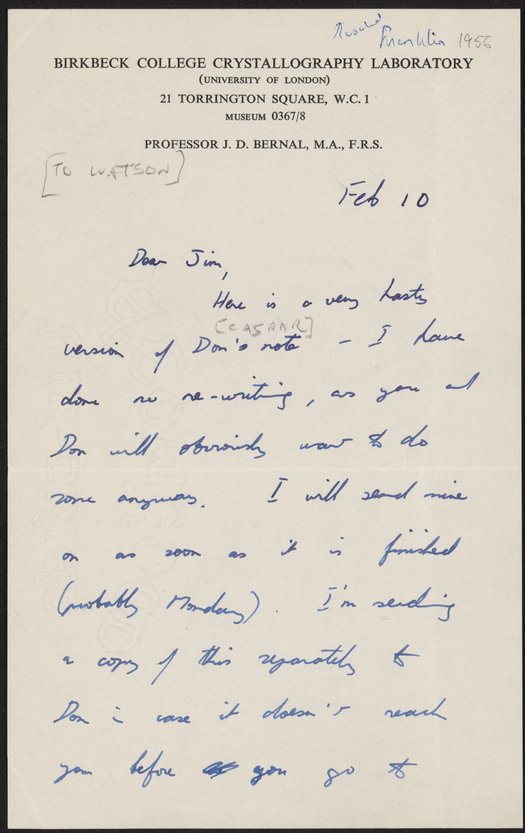 Rosalind
Franklin 1956
BIRKBECK COLLEGE CRYSTALLOGRAPHY LABORATORY
(UNIVERSITY OF LONDON)
21 TORRINGTON SQUARE, W.C. 1
MUSEUM 0367/8
PROFESSOR J. D. BERNAL, M.A., F.R.S.
[TO WATSON]
Feb 10
Dear Jim,
Here is a very hasty
[CASPAR]
version of Don's note – I have
done no re-writing, as you and
Don will obviously want to do
some anyway. I will send mine
on as soon as it is finished
(probably Monday). I'm sending
a copy of this separately to
Don in case it doesn't reach
you before you go to